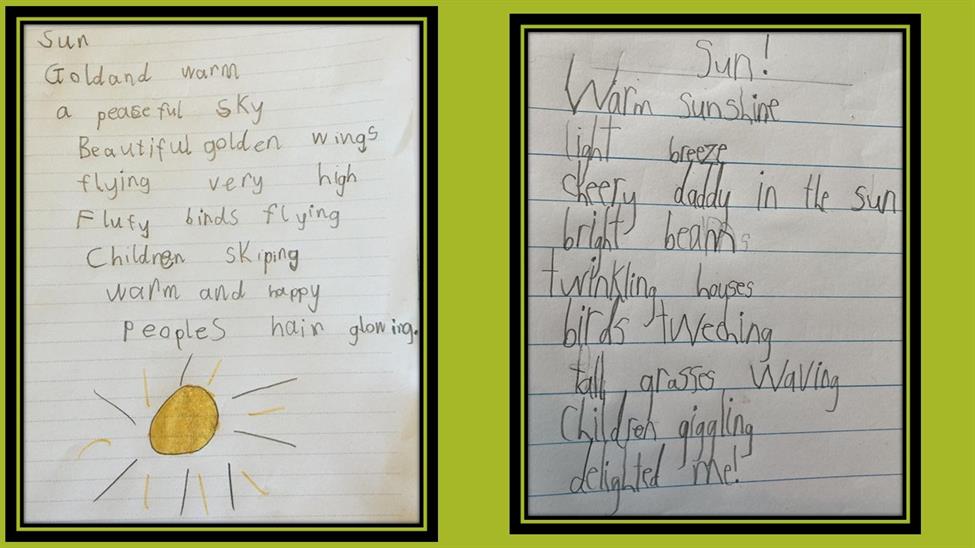 Sun
Gold and warm
a peaseful sky
Beautiful golden wings
flying very high
Flufy birds flying
Children skiping
warm and happy
Peoples hair glowing.
Sun!
Warm sunshine
light breeze
cheery daddy in the sun
bright beams
twinkling houses
birds tweching
tall grasses waving
Children giggling
delighted me!